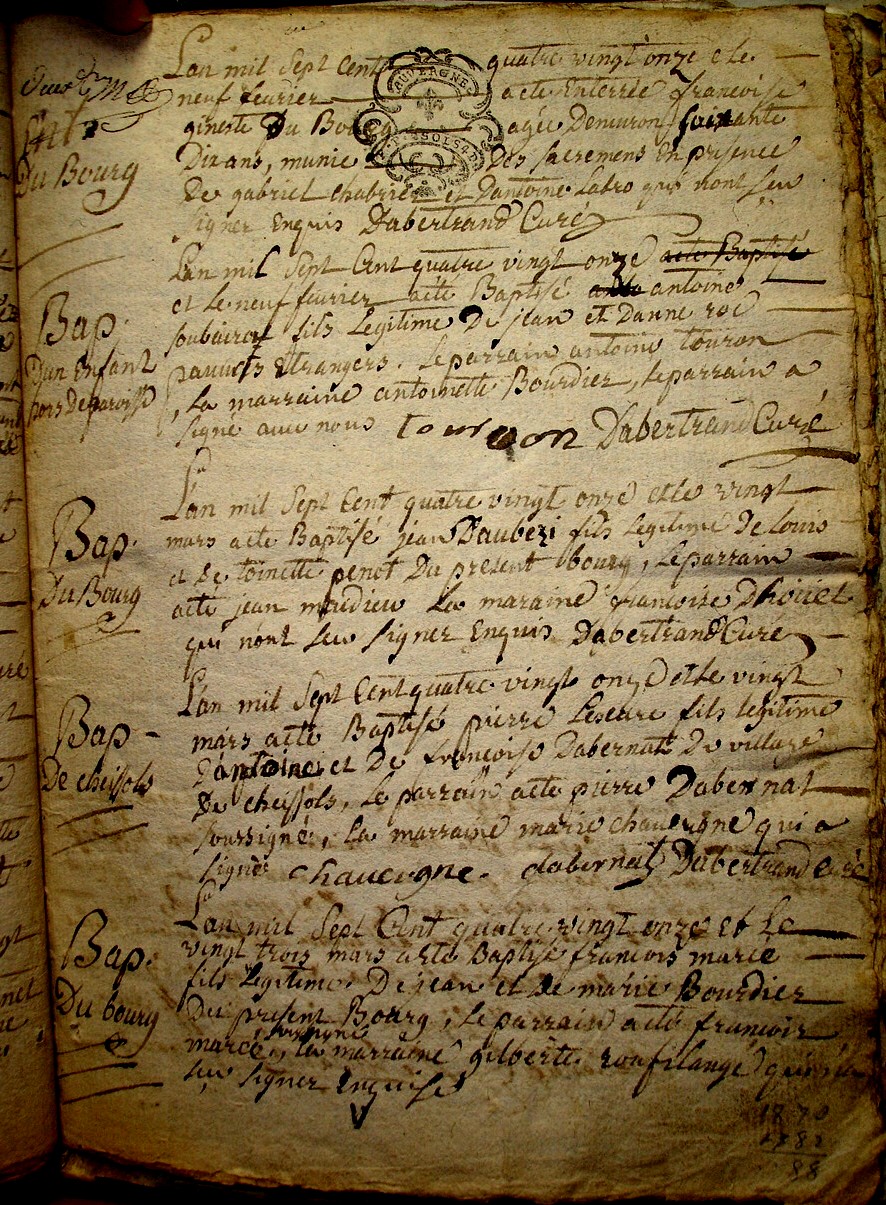 L'an mil sept cent quatre vingt onze et le
neuf fevrier a ete Enterrée francoise
gineste Du Bourg agée Denviron soixante
Dix ans, munie Des sacremens En presence
De gabriel chabrier et Dantoine Latro qui nont sçeu
signer Enquis Dabertrand Curé
Ent
Du Bourg
L'an mil sept Cent quatre vingt onze acte Baptisé
et le neuf fevrier a ete Baptisé antoine
soubairot fils Legitime De jean et Danne roc
pauvres Etrangers. Le parrain antoine touron
, La marraine antoinette Bourdier, Le parrain a
signé avec nous touron Dabertrand Curé
Bap.
Dun Enfant
hors De paroisse
L'an mil sept Cent quatre vingt onze et le vingt
mars a ete Baptisé jean Daubezi fils Legitime De Louis
et De toinette penot Du present bourg, Le parrain
a ete jean La maraine francoise
qui nont sceu signer Enquis Dabertrand Curé
Bap.
Du Bourg
L'an mil sept Cent quatre vingt onze et le vingt
mars a ete Baptisé pierre Lescure fils legitime
D'antoine et De francoise Dabernat Du village
De cheissols, Le parrain a ete pierre Dabernat
soussigné, La marraine marie chauvergne qui a
signé chauvergne. dabernat Dabertrand Curé
Bap
De cheissols
L'an mil sept Cent quatre vingt onze et Le
vingt trois mars a ete Baptisé francois marcé
fils Legitime De jean et De marie Bourdier
Du present Bourg, Le parrain a ete francois
marcé, soussigné La marraine gilberte roufilange qui n'a
sçeu signer Enquise
Bap.
Du bourg
88